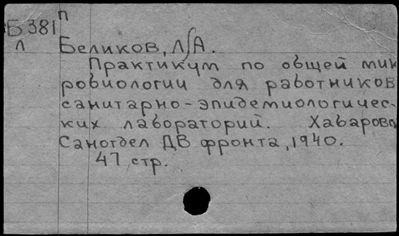 Б381 п
л
Беликов, Л. А.
Практикум по общей мик
робиологии для работников
санитарно-эпидемиологичес-
ких лабораторий. Хабаровс
Санотдел ДВ фронта, 1940.
47 стр.